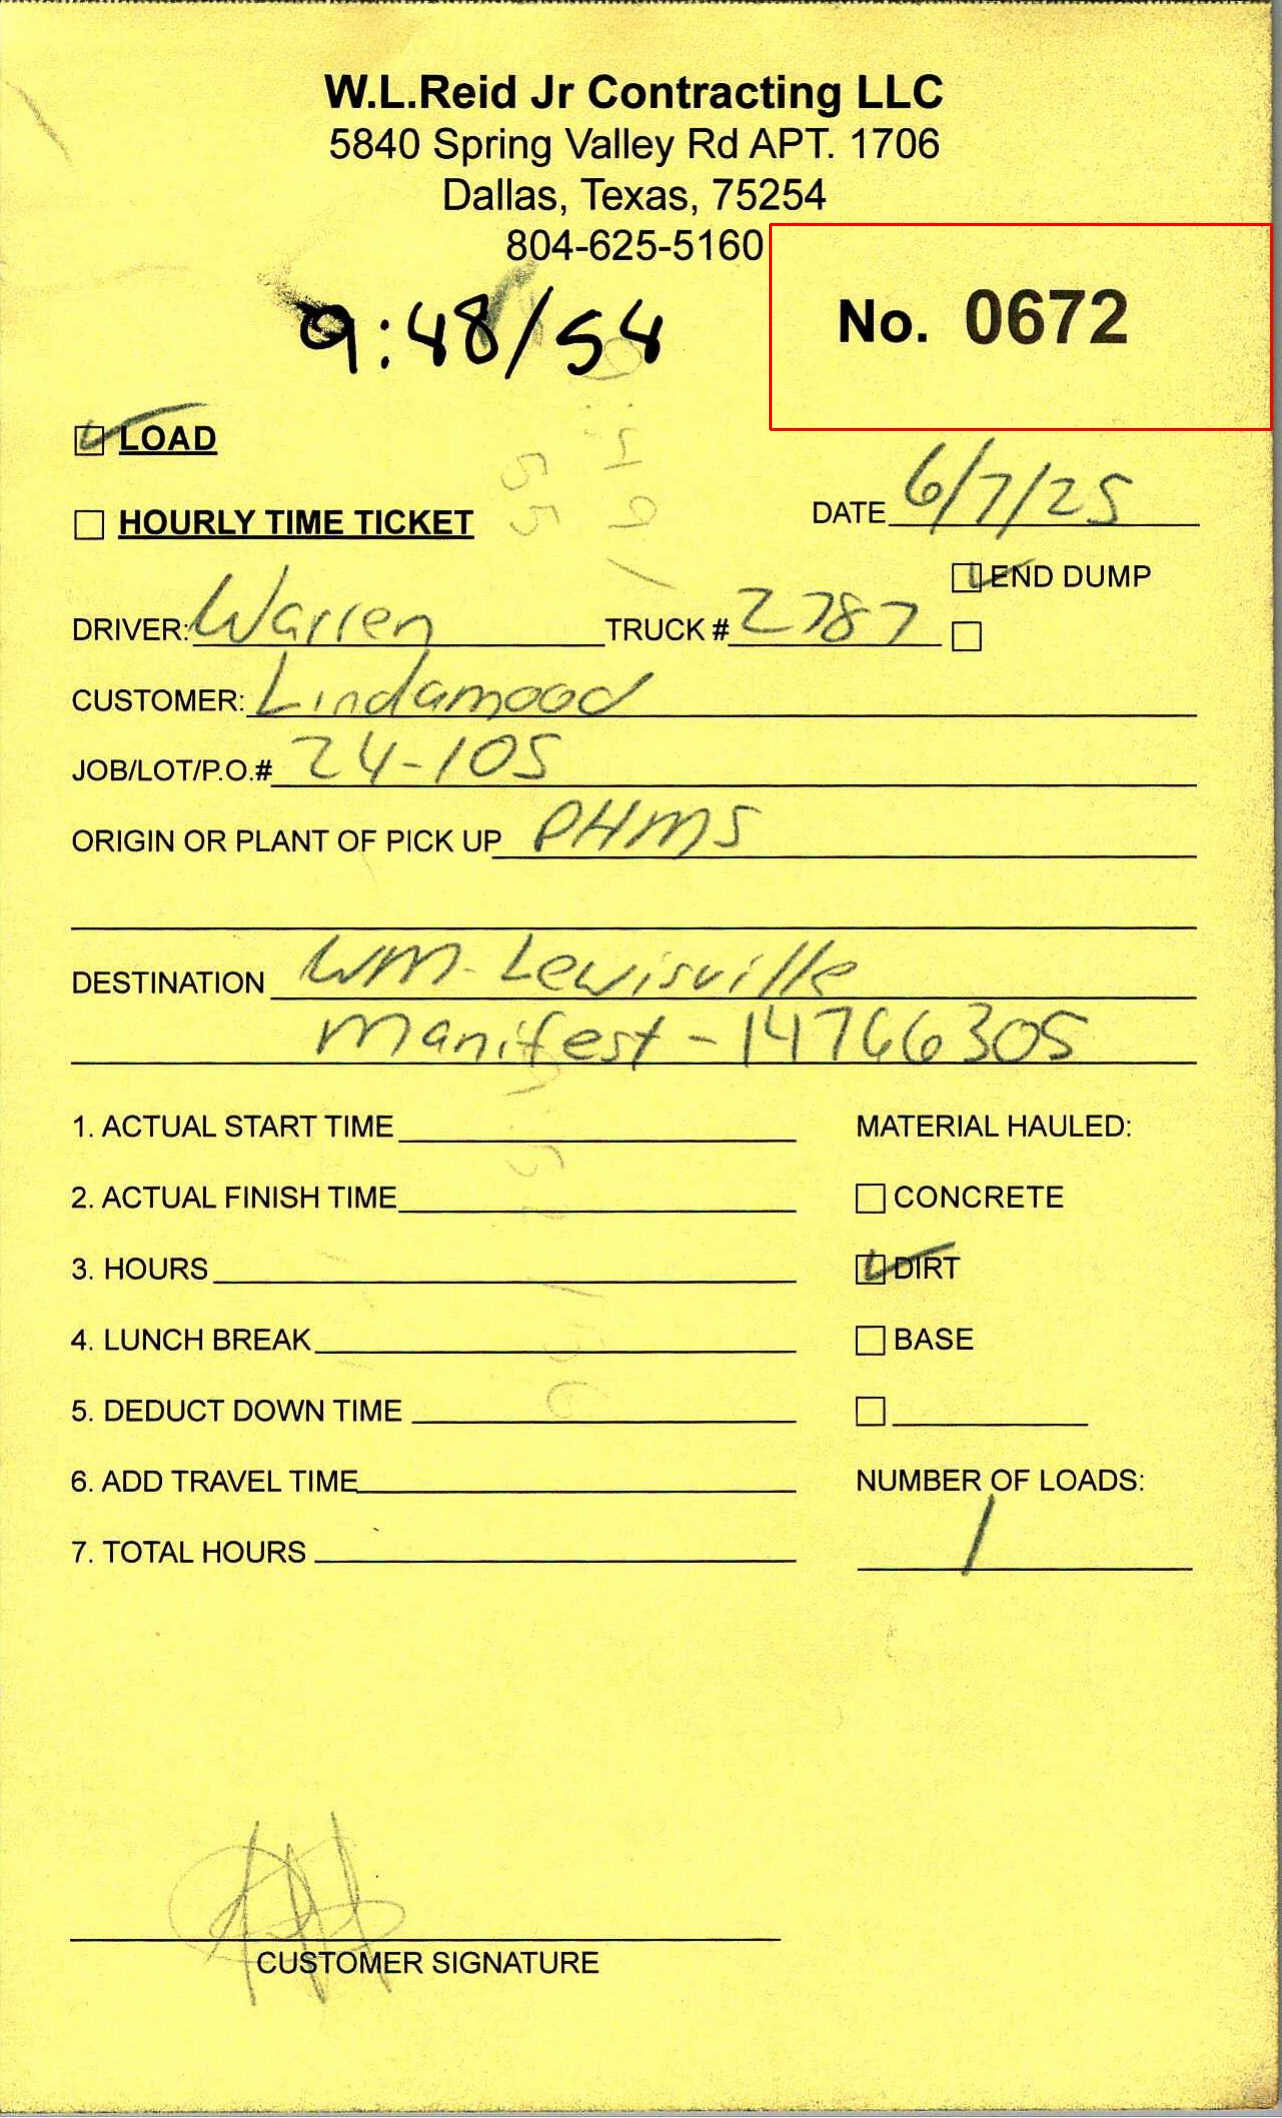 W.L.Reid Jr Contracting LLC
5840 Spring Valley Rd APT. 1706
Dallas, Texas, 75254
804-625-5160
9:48/54
No. 0672
LOAD
HOURLY TIME TICKET
DATE 6/7/25
END DUMP
DRIVER: Warren TRUCK # 2787
CUSTOMER: Lindamood
JOB/LOT/P.O.# 24-105
ORIGIN OR PLANT OF PICK UP PHMS
DESTINATION WM-Lewisville
Manifest-14766305
1. ACTUAL START TIME
MATERIAL HAULED:
2. ACTUAL FINISH TIME
CONCRETE
3. HOURS
DIRT
4. LUNCH BREAK
BASE
5. DEDUCT DOWN TIME
6. ADD TRAVEL TIME
NUMBER OF LOADS:
7. TOTAL HOURS
1
CUSTOMER SIGNATURE